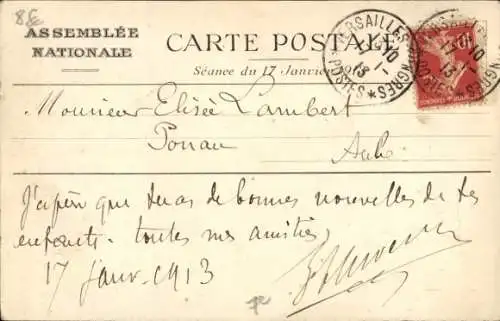 8€
ASSEMBLÉE
NATIONALE
CARTE POSTALE
Séance du 17 Janvier
VERSAILLES CONGRES
POSTES
13
10
Monsieur Elisée Lambert
Aube
J'espère que tu as de bonnes nouvelles de tes
enfants. toutes mes amitiés,
17 janv. 1913